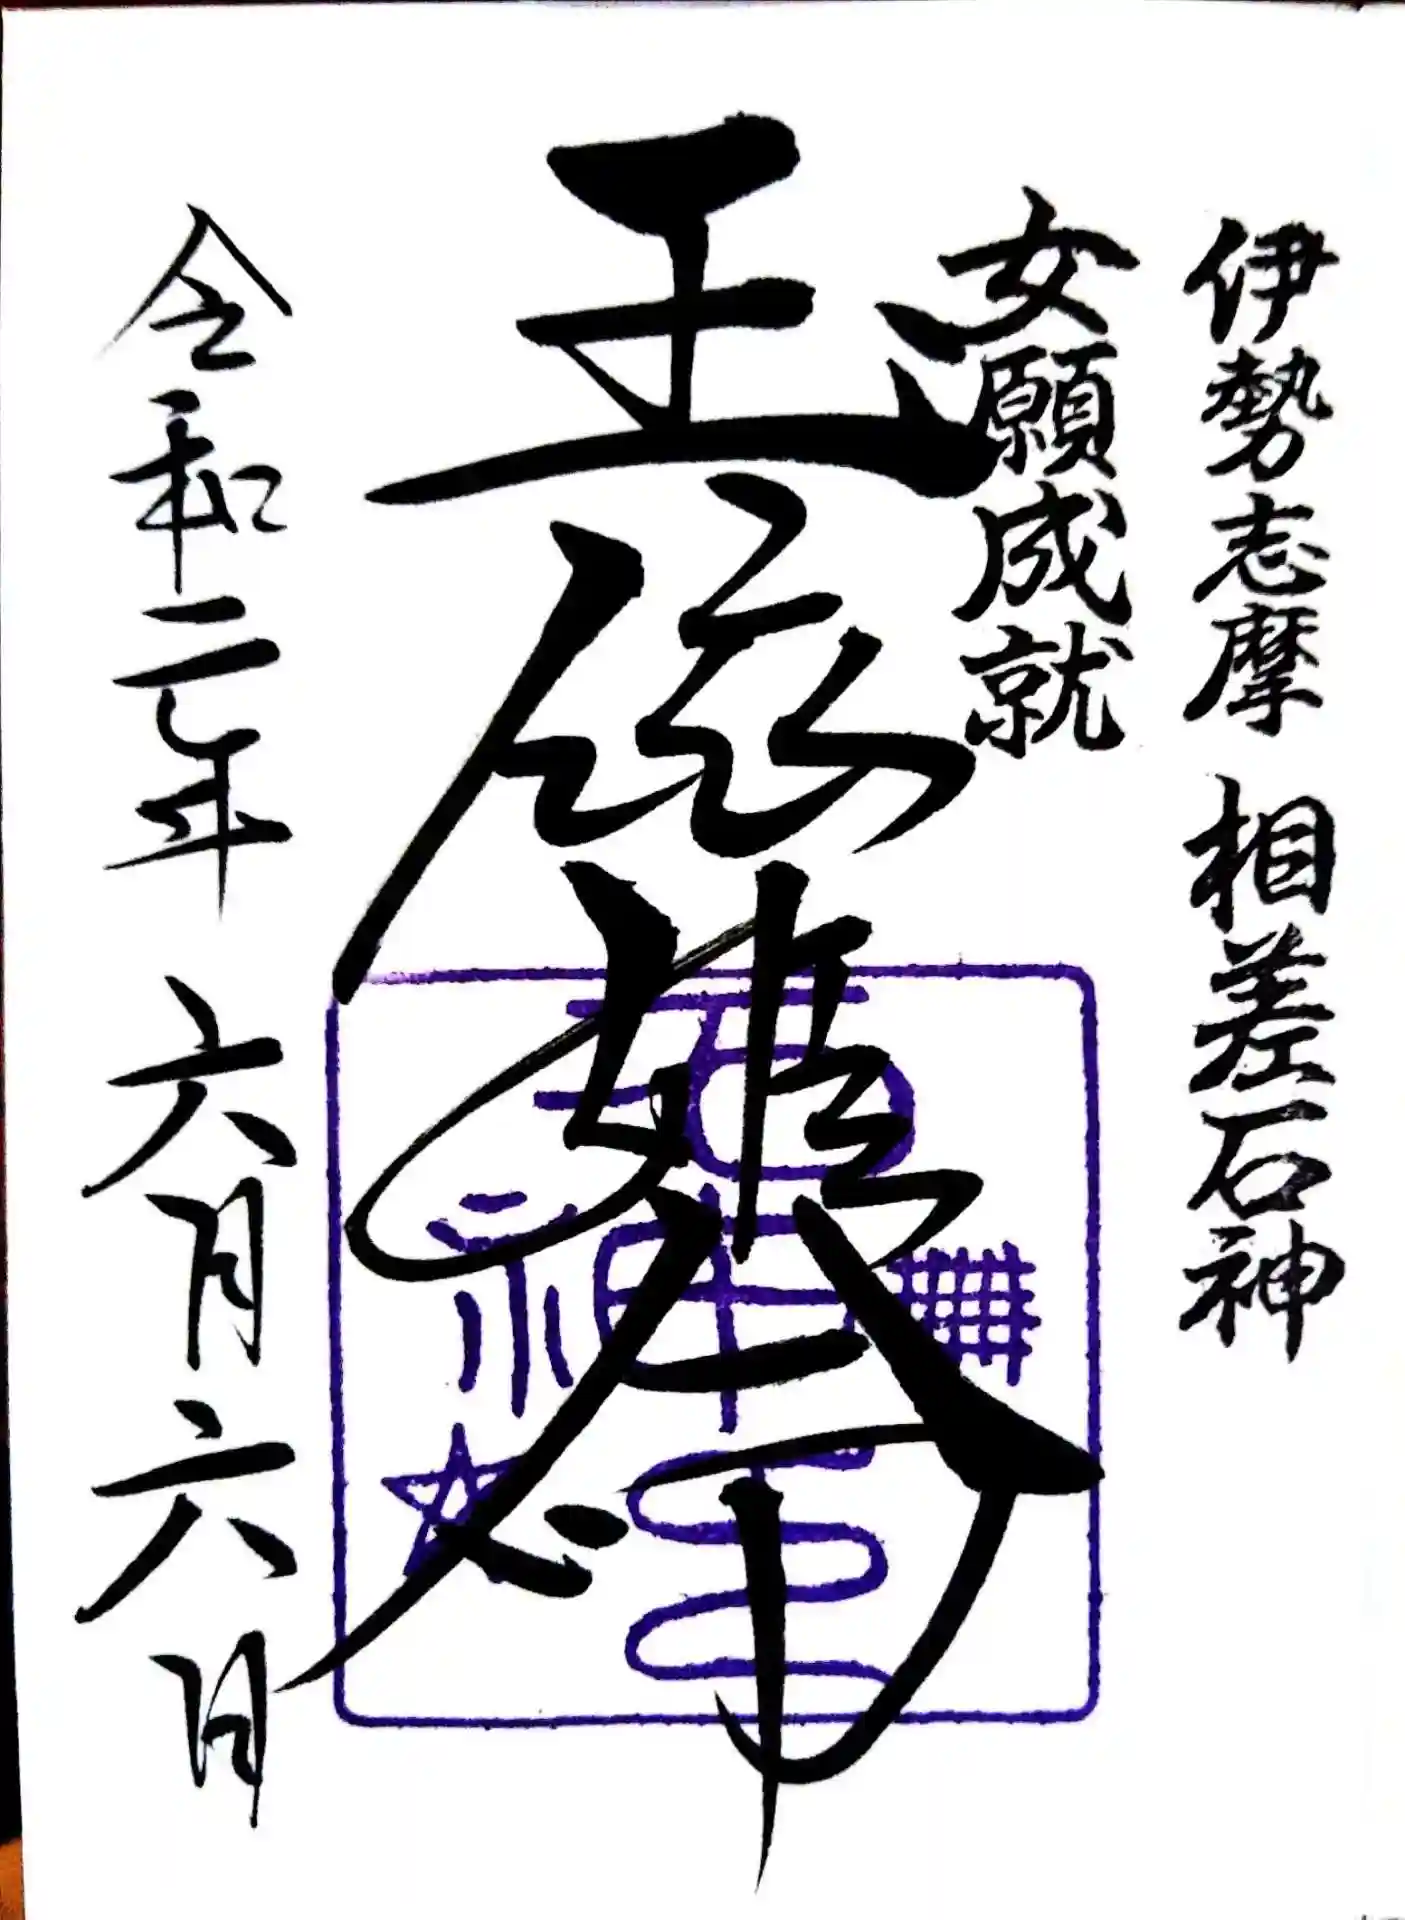 伊勢志摩 相差石神
女願成就
玉依姫命
令和二年 六月六日
石神